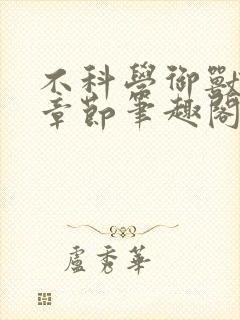 不科學御獸
章節筆趣閣
盧秀華